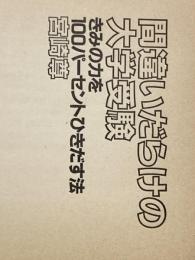 間違いだらけの
大学受験
きみの力を
100パーセントひきだす法
宮崎尊